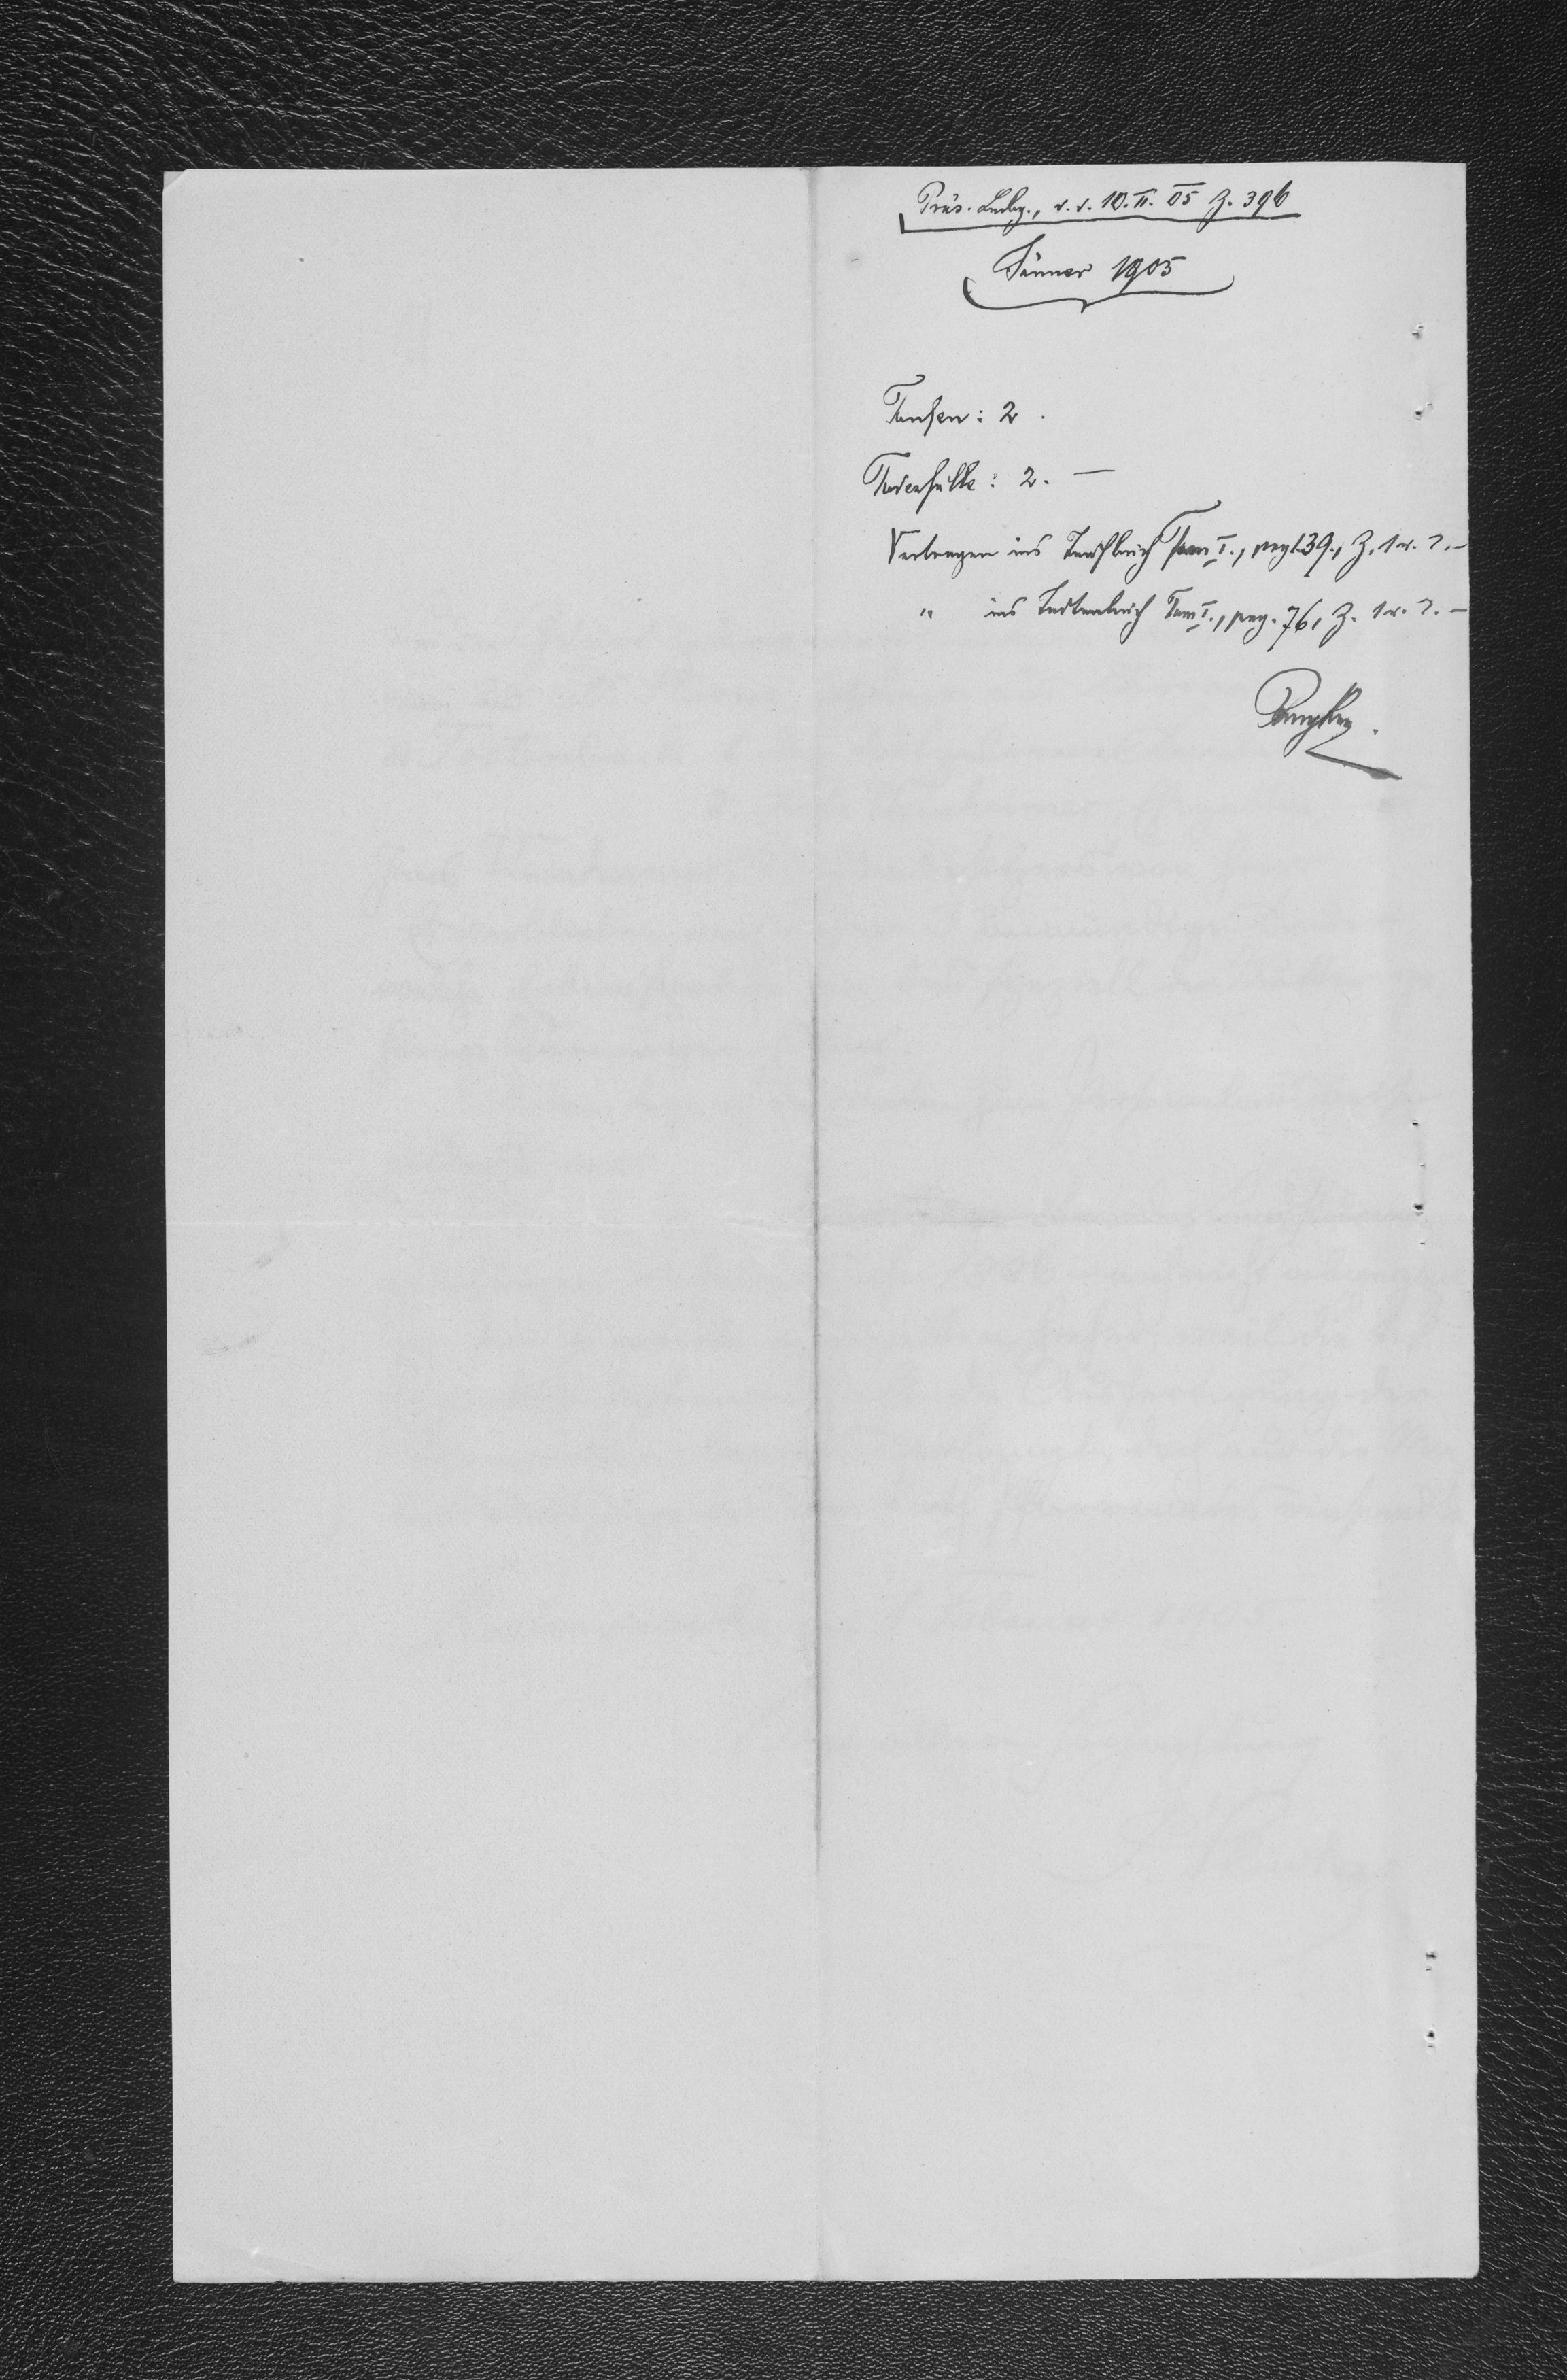 Präs. v. 10.II.05 Z. 396
Jänner 1905
Taufen: 2.
Todesfälle: 2. —
Vertragen ins Taufbuch Tom I., pag. 139., Z. 1 u. 2. —
" ins Totenbuch Tom I., pag. 76, Z. 1 u. 2. —